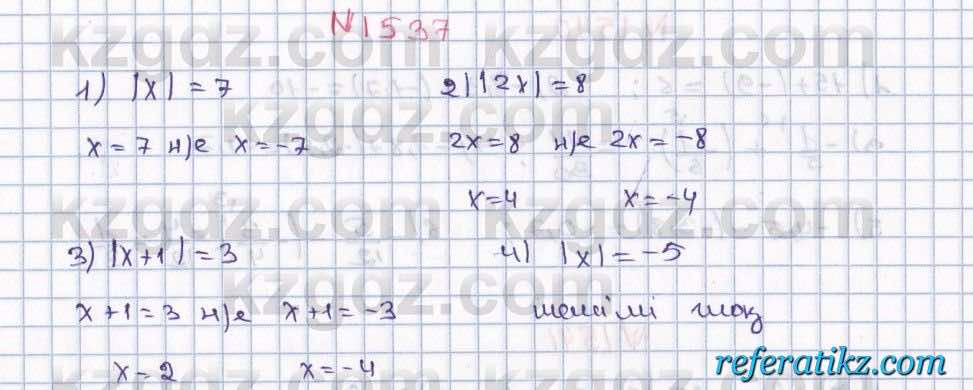 №1537
1) |x| = 7 2) |2x| = 8
x = 7 н/е x = -7 2x = 8 н/е 2x = -8
x = 4 x = -4
3) |x+1| = 3 4) |x| = -5
x+1 = 3 н/е x+1 = -3 шешімі жоқ
x = 2 x = -4
kzgdz.com
referatikz.com